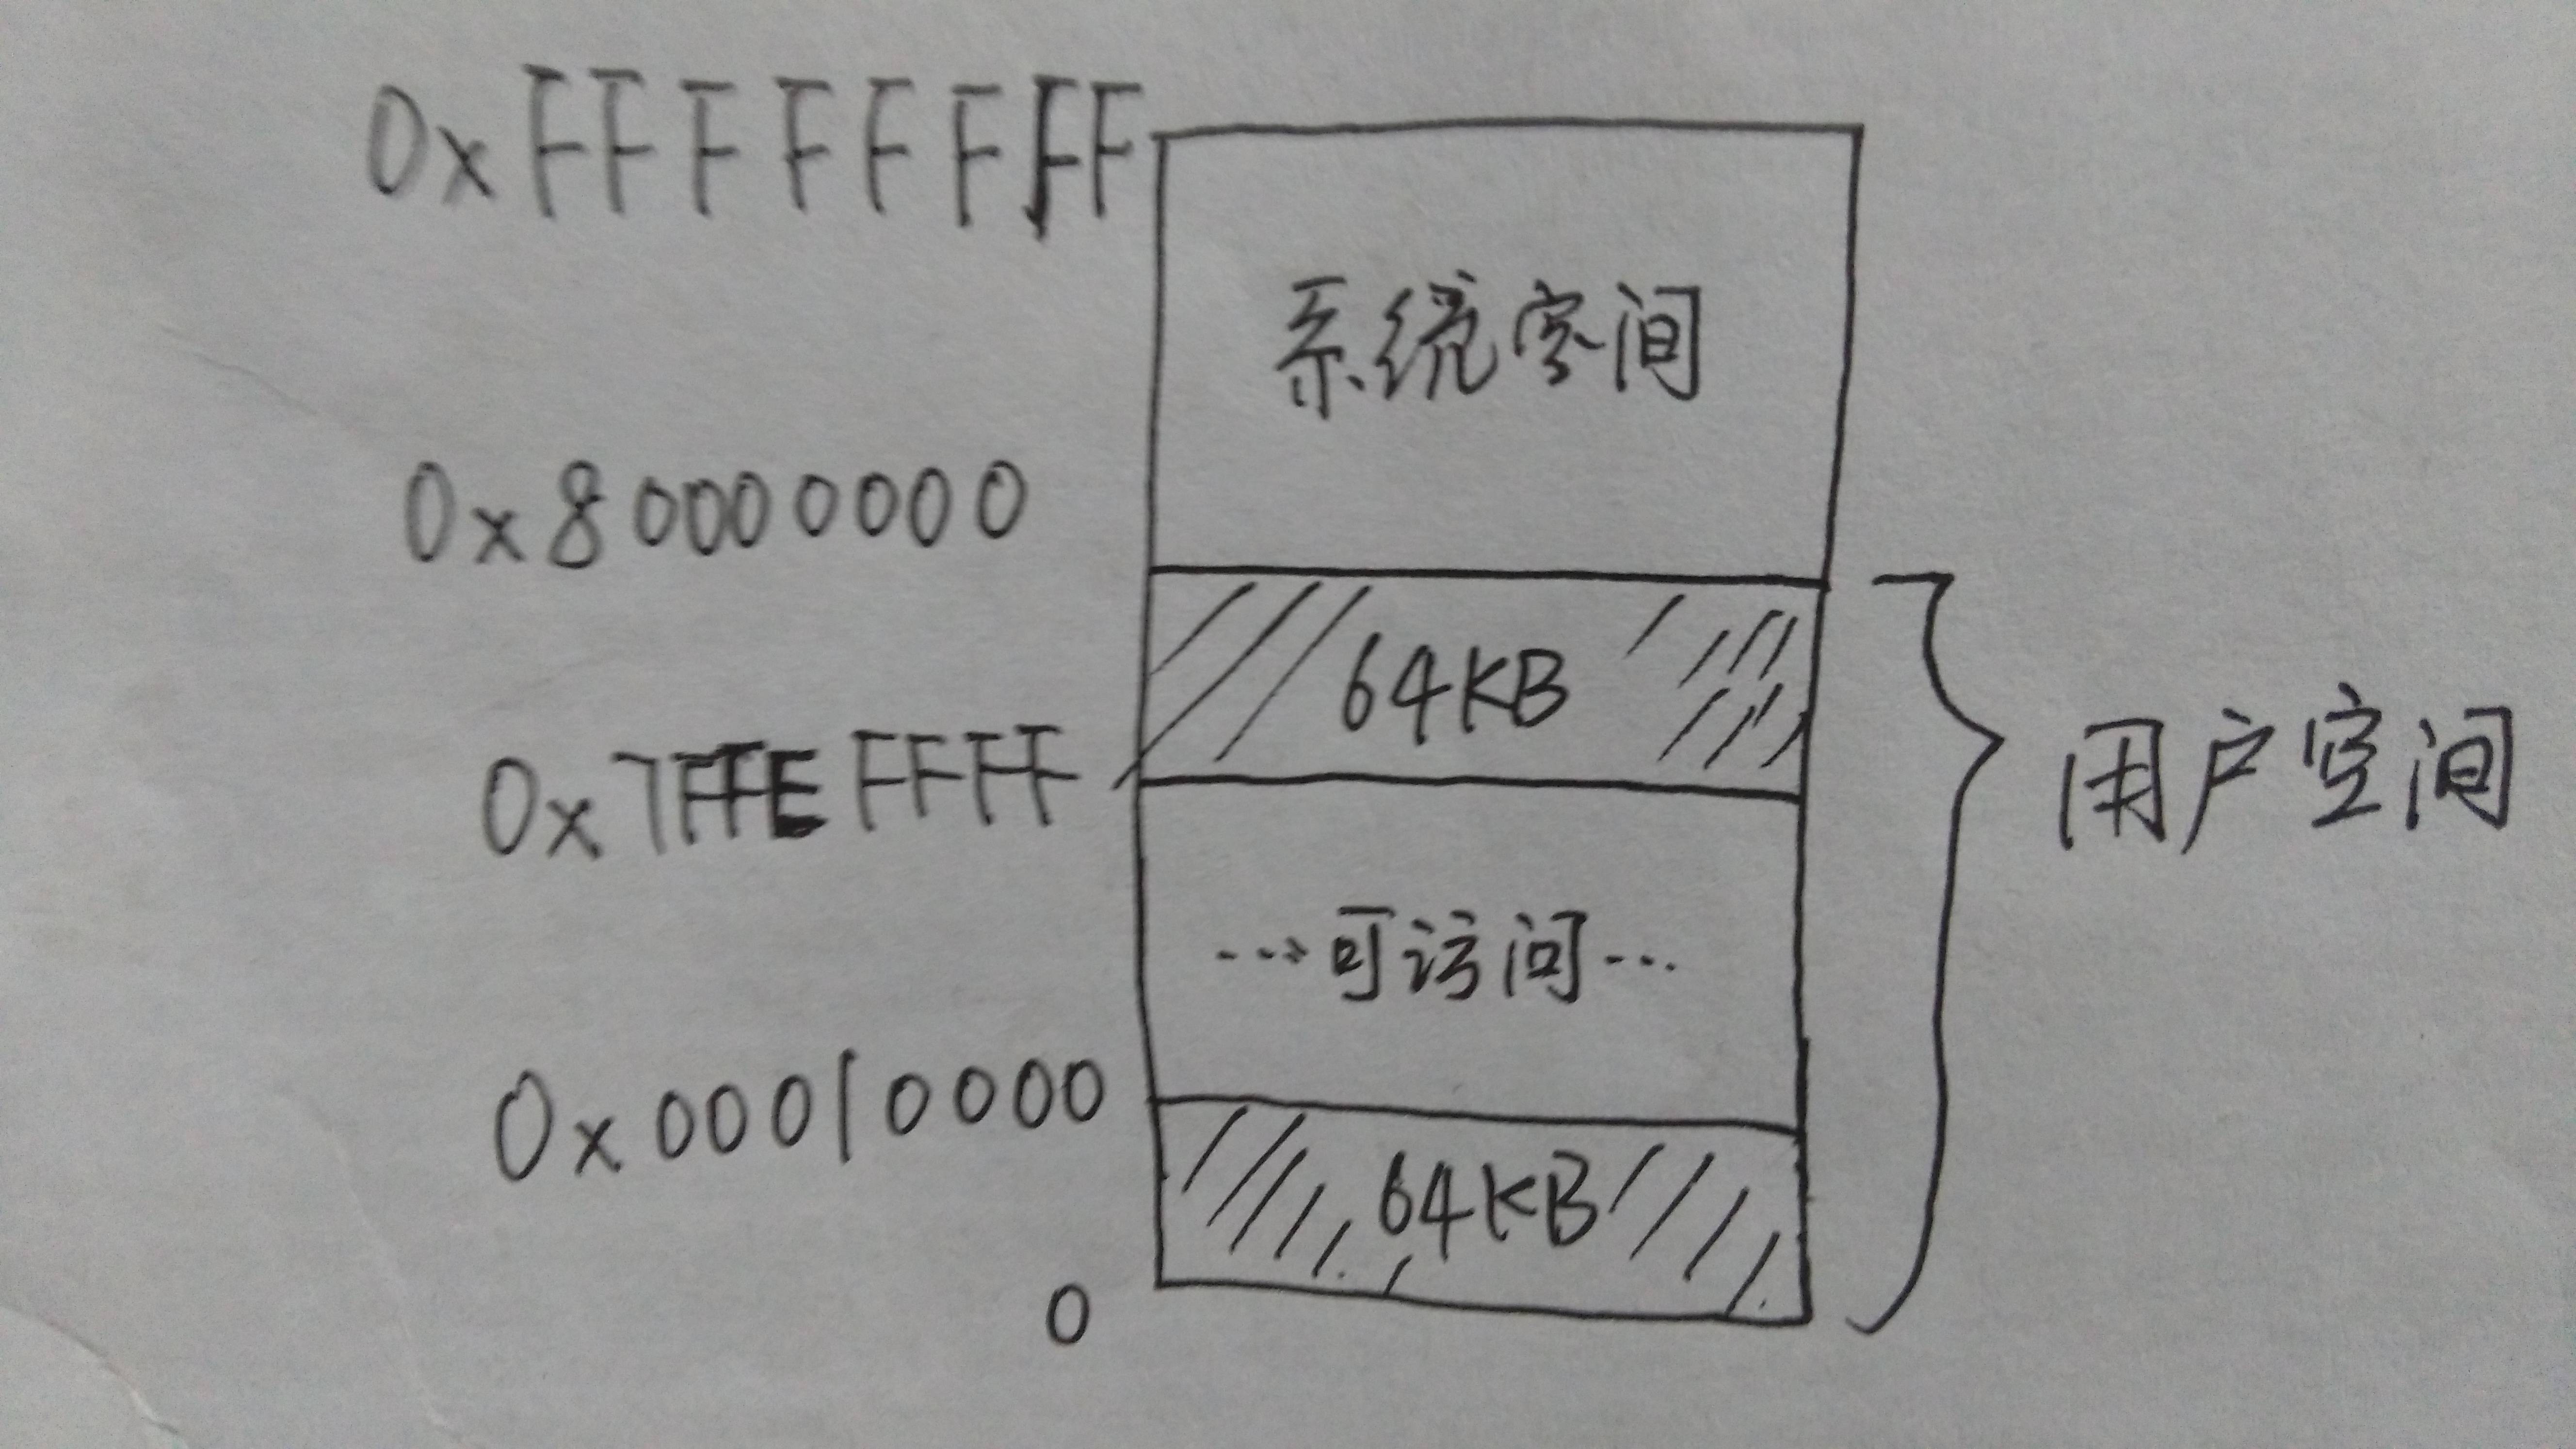 0xFFFFFFFF
系统空间
0x80000000
64KB
0x7FFEFFFF
用户空间
...可访问...
0x00010000
64KB
0